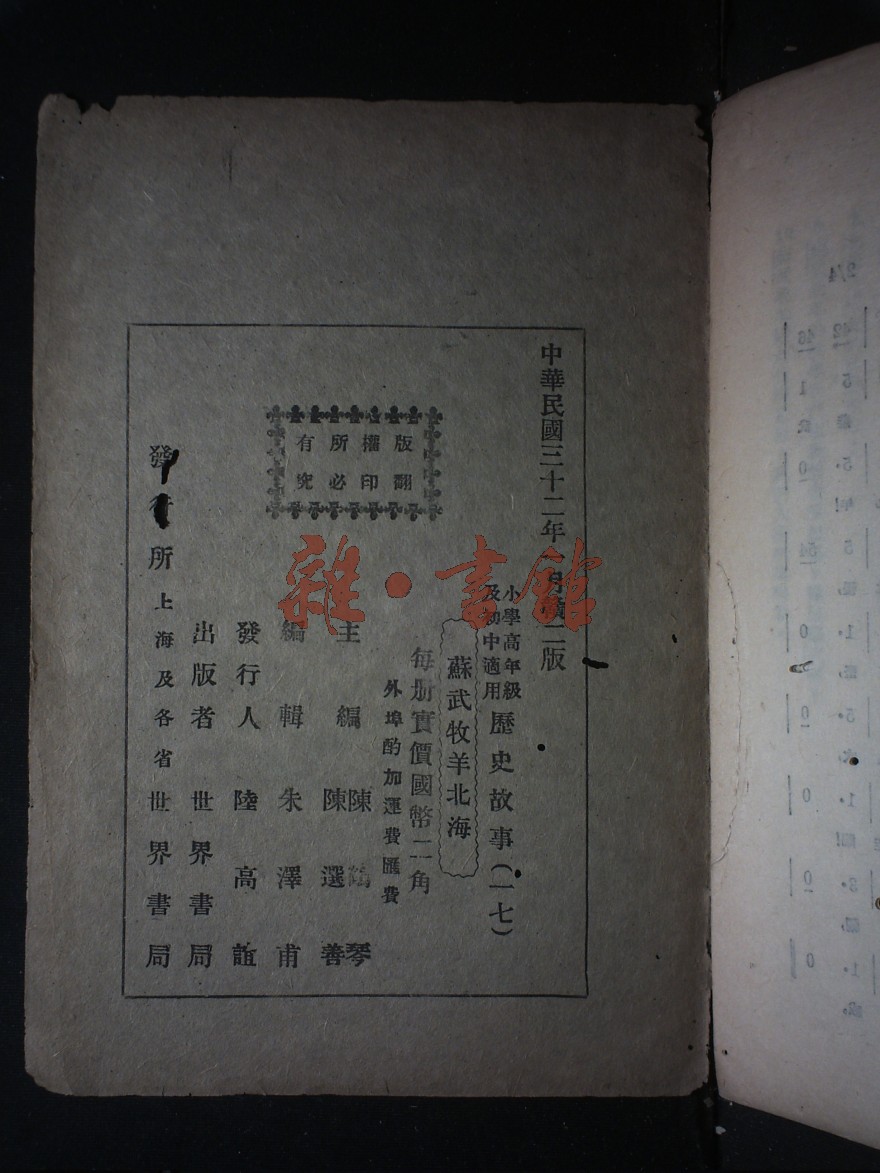 中華民國三十二年一月續二版
小學高年級
及初中適用
歷史故事(一七)
蘇武牧羊北海
每册實價國幣二角
外埠酌加運費匯費
主編 陳鶴琴
陳選善
編輯 朱澤甫
發行人 陸高誼
出版者 世界書局
發行所 上海及各省世界書局
版權所有
翻印必究
雜·書館